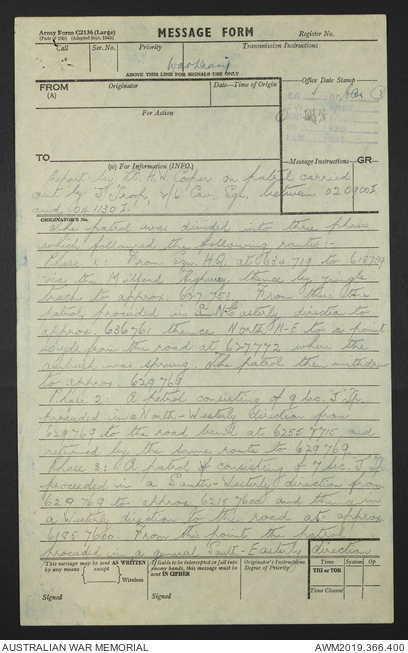 Army Form C2136 (Large)
MESSAGE FORM
Register No.
Call
Ser. No.
Priority
Transmission Instructions
War Diary
ABOVE THIS LINE FOR SIGNALS USE ONLY
FROM
(A)
Originator
Date—Time of Origin
Office Date Stamp
For Action
TO
(w) For Information (INFO.)
Message Instructions
GR
Report by Lt. H.W. Cooper on patrol carried
out by J Troop, 2/6 Cav. Sqn. between 020900I
and 041130I.
ORIGINATOR'S No.
The patrol was divided into three phases
which followed the following routes:-
Phase 1: From HQ. at 634719 to 618739
via the Milford Highway thence by jungle
track to approx. 627753. From there the
patrol proceeded in a N-Easterly direction to
approx. 636761 thence North N-E to a point
yds from the road at 627772 where the
ambush was sprung. The patrol then withdrew
to approx. 629769
Phase 2: A patrol consisting of 9 sec. J Tp.
proceeded in a North-Westerly direction from
629769 to the road bend at 6255 7715 and
returned by the same route to 629769.
Phase 3: A patrol consisting of 7 sec. J Tp
proceeded in a South-Westerly direction from
629769 to approx. 6215 7600 and then in
a Westerly direction to the road at approx
6185 7600. From this point the patrol
proceeded in a general South-Easterly direction
This message may be sent AS WRITTEN
by any means except
Wireless
Signed
If liable to be intercepted or fall into
enemy hands, this message must be
sent IN CIPHER
Signed
Originator's Instructions
Degree of Priority
Time
System
Op
THI or TOR
Time Cleared
AUSTRALIAN WAR MEMORIAL
AWM2019.366.400